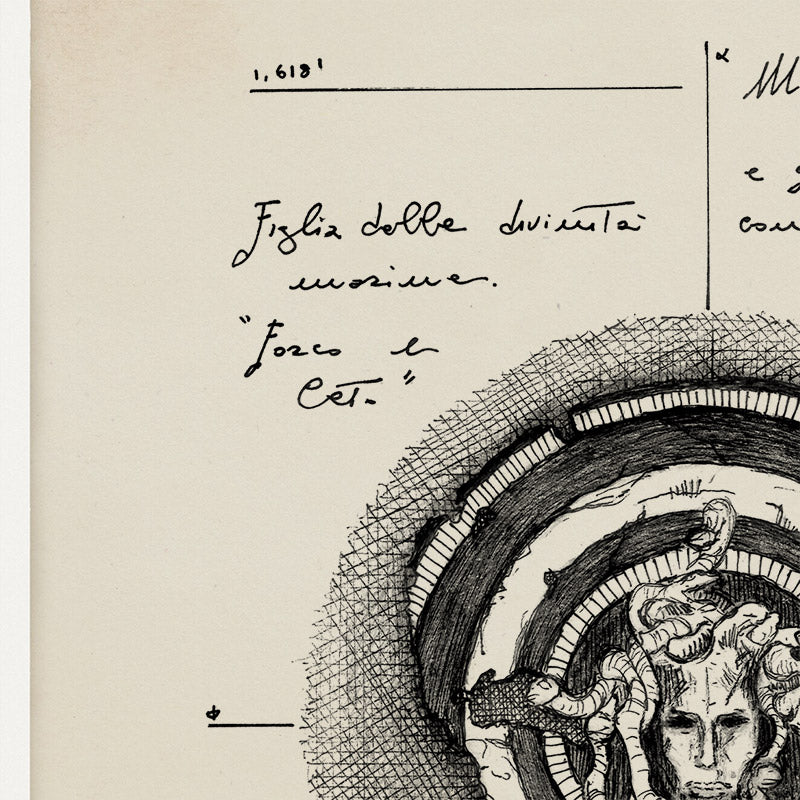 1,618'
Figlia delle divinità
marine.
"Forco e
Ceto"
α
e